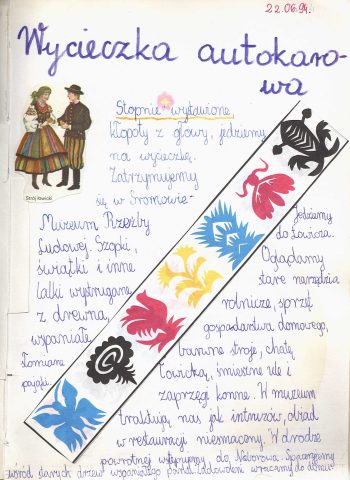 22.06.94.
Wycieczka autokaro-
wa
Stopnie wystawione,
kłopoty z głowy, jedziemy
na wycieczkę.
Zatrzymujemy
się w Sromowie -
Strój łowicki
Muzeum Rzeźby
Ludowej. Szopki,
świątki i inne
lalki wystrugane
z drewna,
wspaniałe
słomiane
pająki.
Jedziemy
do Łowicza.
Oglądamy
stare narzędzia
rolnicze, sprzęt
gospodarstwa domowego,
barwne stroje, chatę
łowicką, śmieszne ule i
zaprzęgi konne. W muzeum
traktują nas jak intruzów, obiad
w restauracji niesmaczny. W drodze
powrotnej wstępujemy do Nieborowa. Spacerujemy
wśród starych drzew wspaniałego parku. wracamy do domów